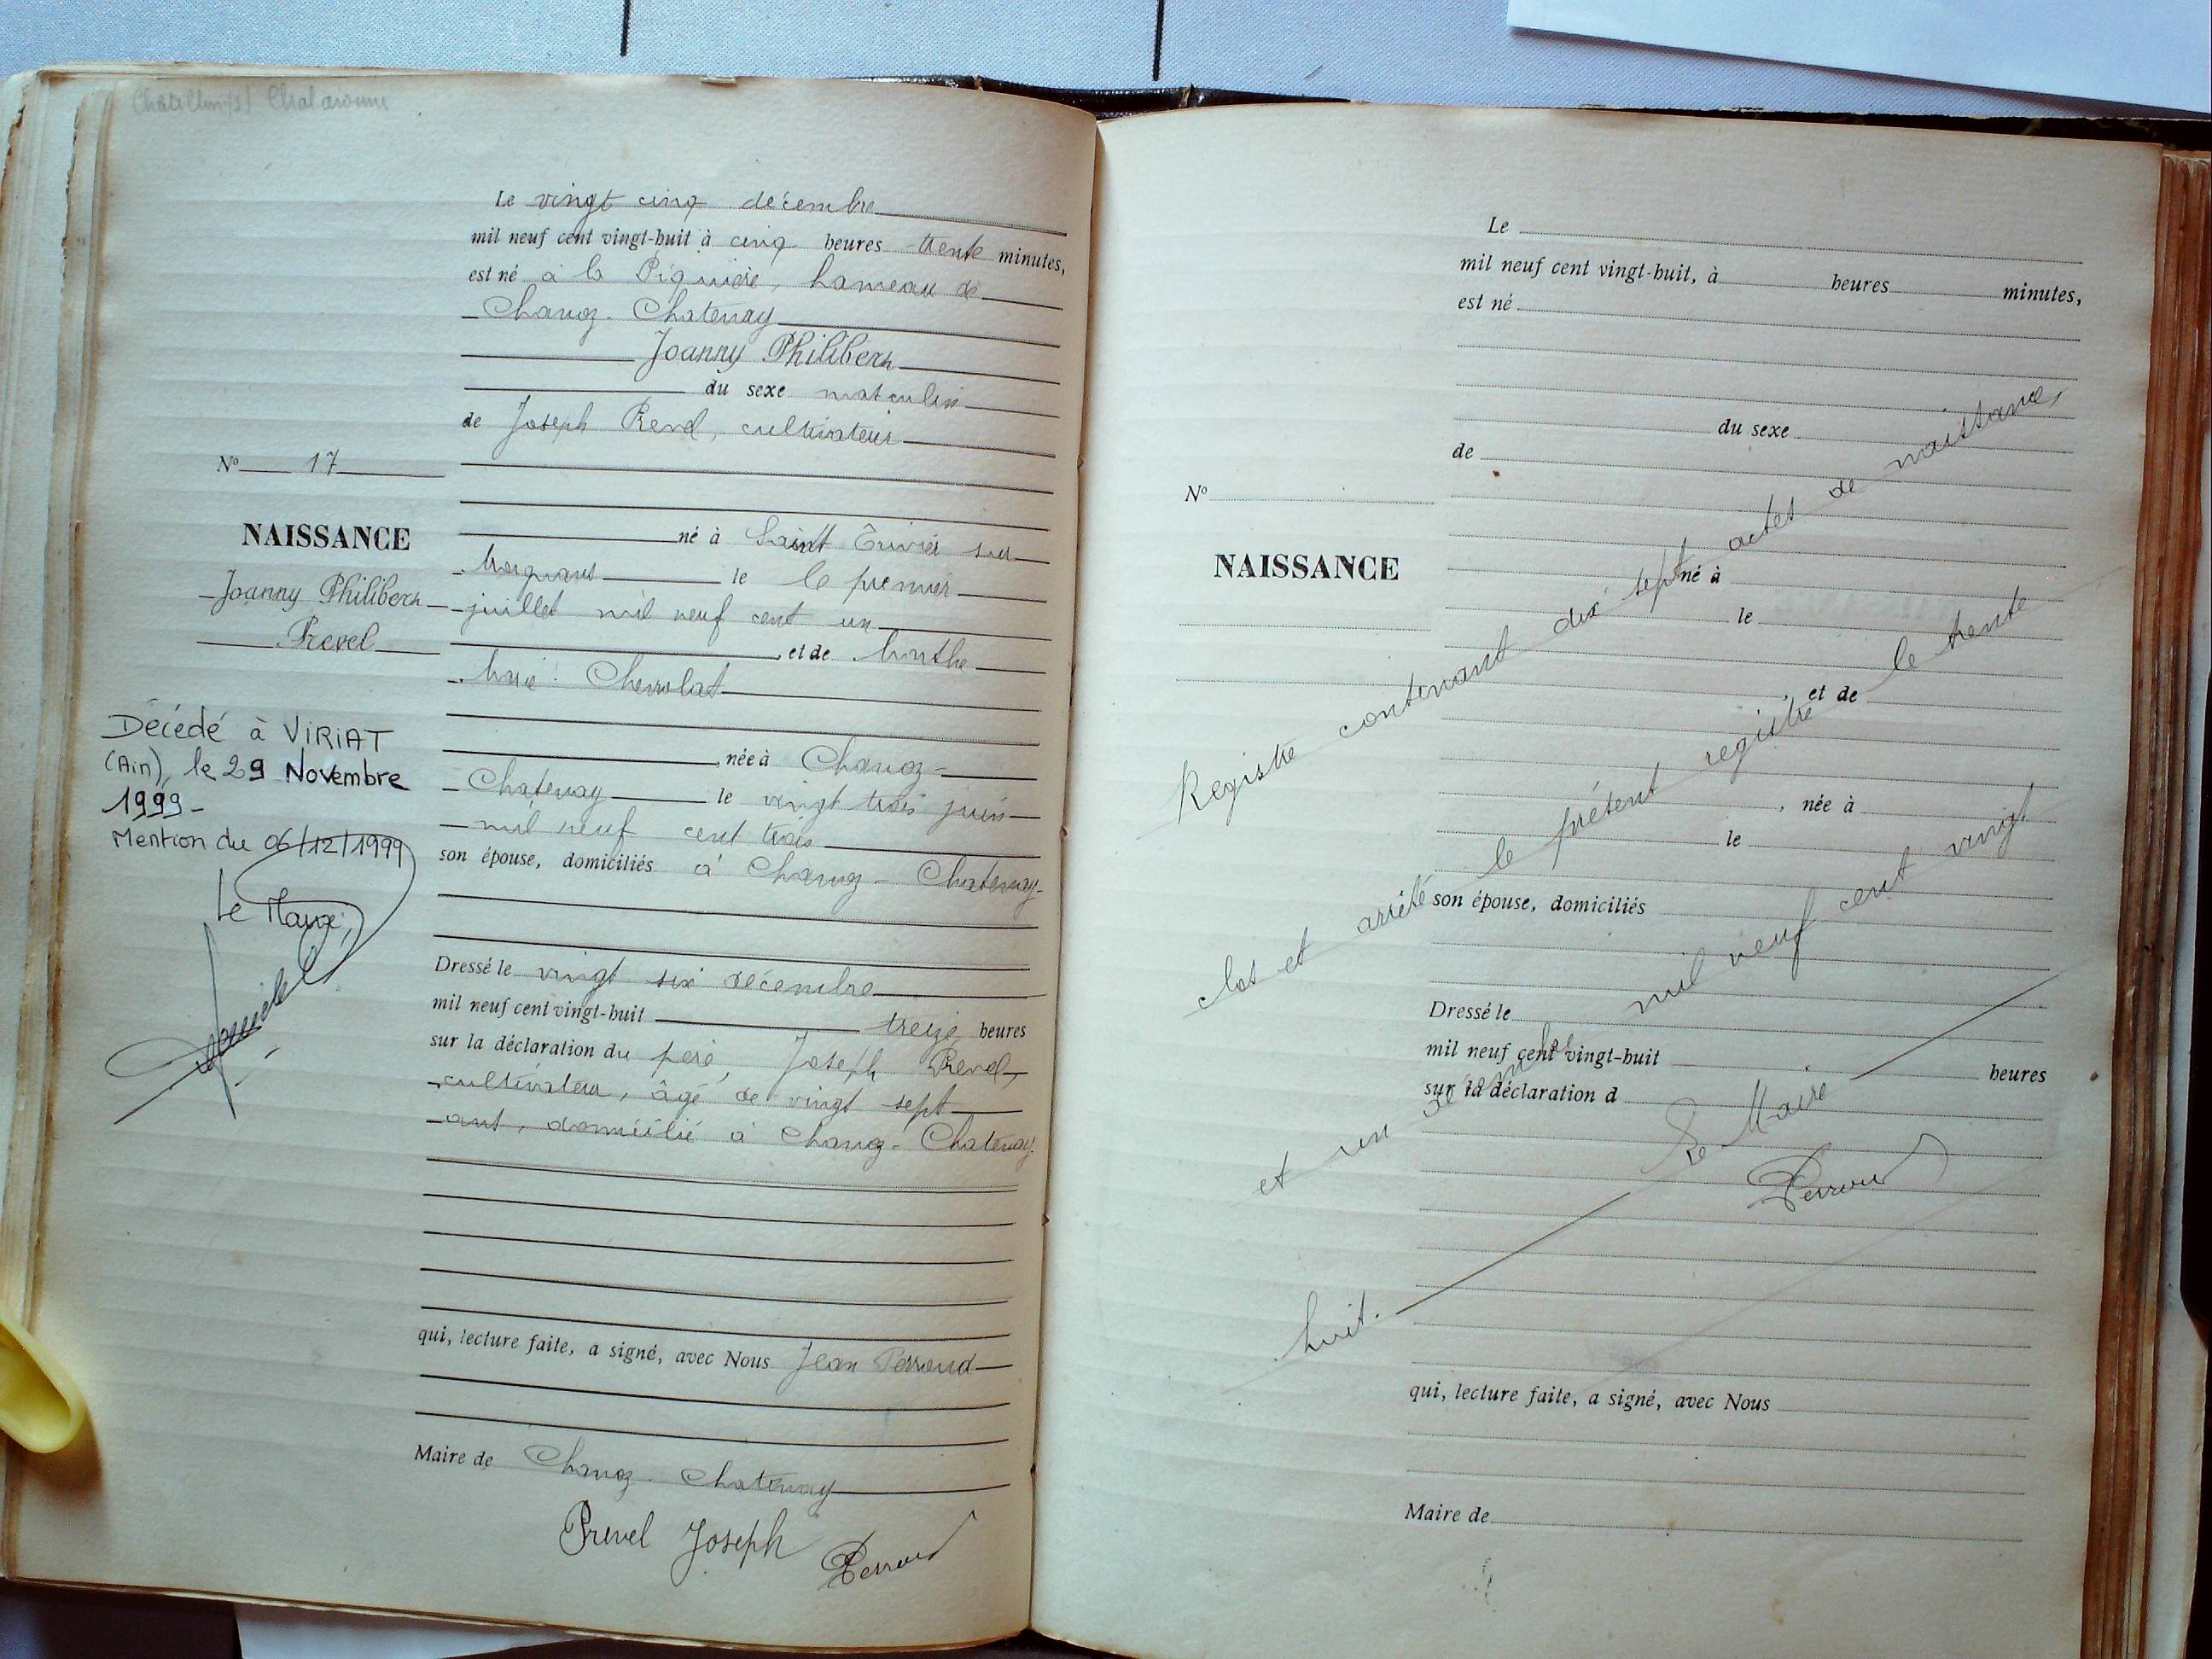 Châtillon (s) Chalaronne
Le vingt cinq décembre
mil neuf cent vingt-huit à cinq heures trente minutes,
est né à la , hameau de
Chanoz-Chatenay
Joanny Philibert
du sexe masculin
de Joseph Prevel, cultivateur
né à Saint Trivier sur
Moignans le le premier
juillet mil neuf cent un
, et de Marthe
Marie
, née à Chanoz-
Chatenay le vingt trois juin
mil neuf cent trois
son épouse, domiciliés à Chanoz-Chatenay
Dressé le vingt six décembre
mil neuf cent vingt-huit treize heures
sur la déclaration du père, Joseph Prevel,
cultivateur, âgé de vingt sept
ans, domicilié à Chanoz-Chatenay.
qui, lecture faite, a signé, avec Nous Jean Perroud
Maire de Chanoz-Chatenay
Prevel Joseph Perroud
N° 17
NAISSANCE
Joanny Philibert
Prevel
Décédé à VIRIAT
(Ain), le 29 Novembre
1999-
Mention du 06/12/1999
Le Maire,
Le
mil neuf cent vingt-huit, à heures minutes,
est né
du sexe
de
né à
le
, et de
, née à
le
son épouse, domiciliés
Dressé le
mil neuf cent vingt-huit heures
sur la déclaration d
qui, lecture faite, a signé, avec Nous
Maire de
N°
NAISSANCE
Registre contenant dix sept actes de naissance,
clos et arrêté le présent registre le trente
et un décembre mil neuf cent vingt
huit.
Le Maire
Perroud